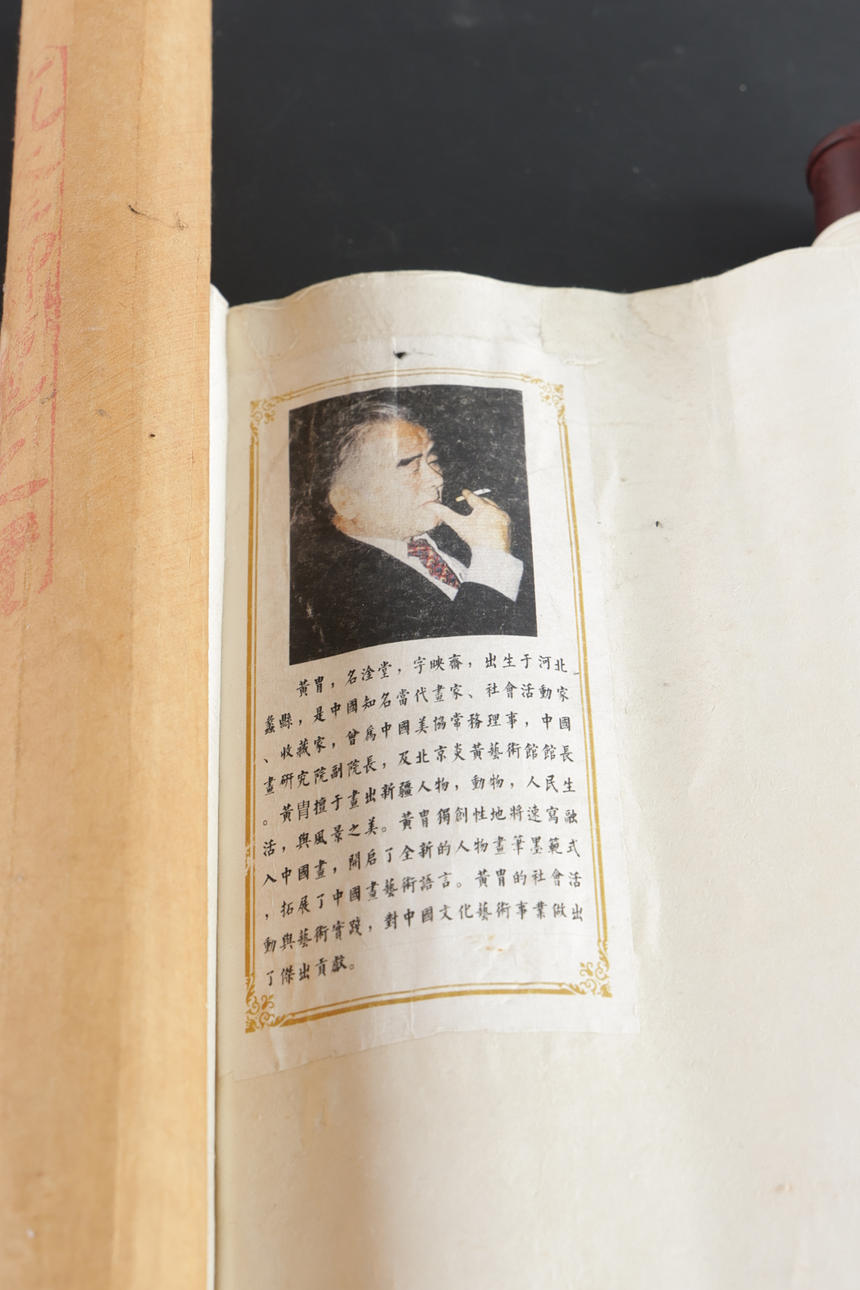 黃胄，名淦堂，字映齋，出生于河北
蠡縣，是中國知名當代畫家、社會活動家
、收藏家，曾爲中國美協常務理事，中國
畫研究院副院長，及北京炎黃藝術館館長
。黃胄擅于畫出新疆人物，動物，人民生
活，與風景之美。黃胄獨創性地將速寫融
入中國畫，開启了全新的人物畫筆墨範式
，拓展了中國畫藝術語言。黃胄的社會活
動與藝術實踐，對中國文化藝術事業做出
了傑出貢獻。